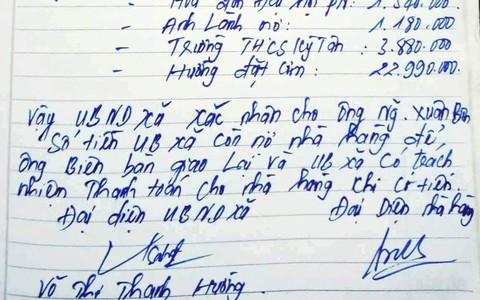 - Hoá đơn tiếp mọi pH: 1.340.000.
- Anh Lành nợ: 1.180.000
- Trường THCS Kỳ Tân: 3.880.000
- Hướng đặt cỗ: 22.990.000
Vậy UBND xã xác nhận cho ông Ng. Xuân Biên
Số tiền UB xã còn nợ nhà hàng để,
ông Biên bàn giao lại và UB xã có trách
nhiệm thanh toán cho nhà hàng khi có tiền.
Đại diện UBND xã Đại diện nhà hàng
Võ Thị Thanh Hương